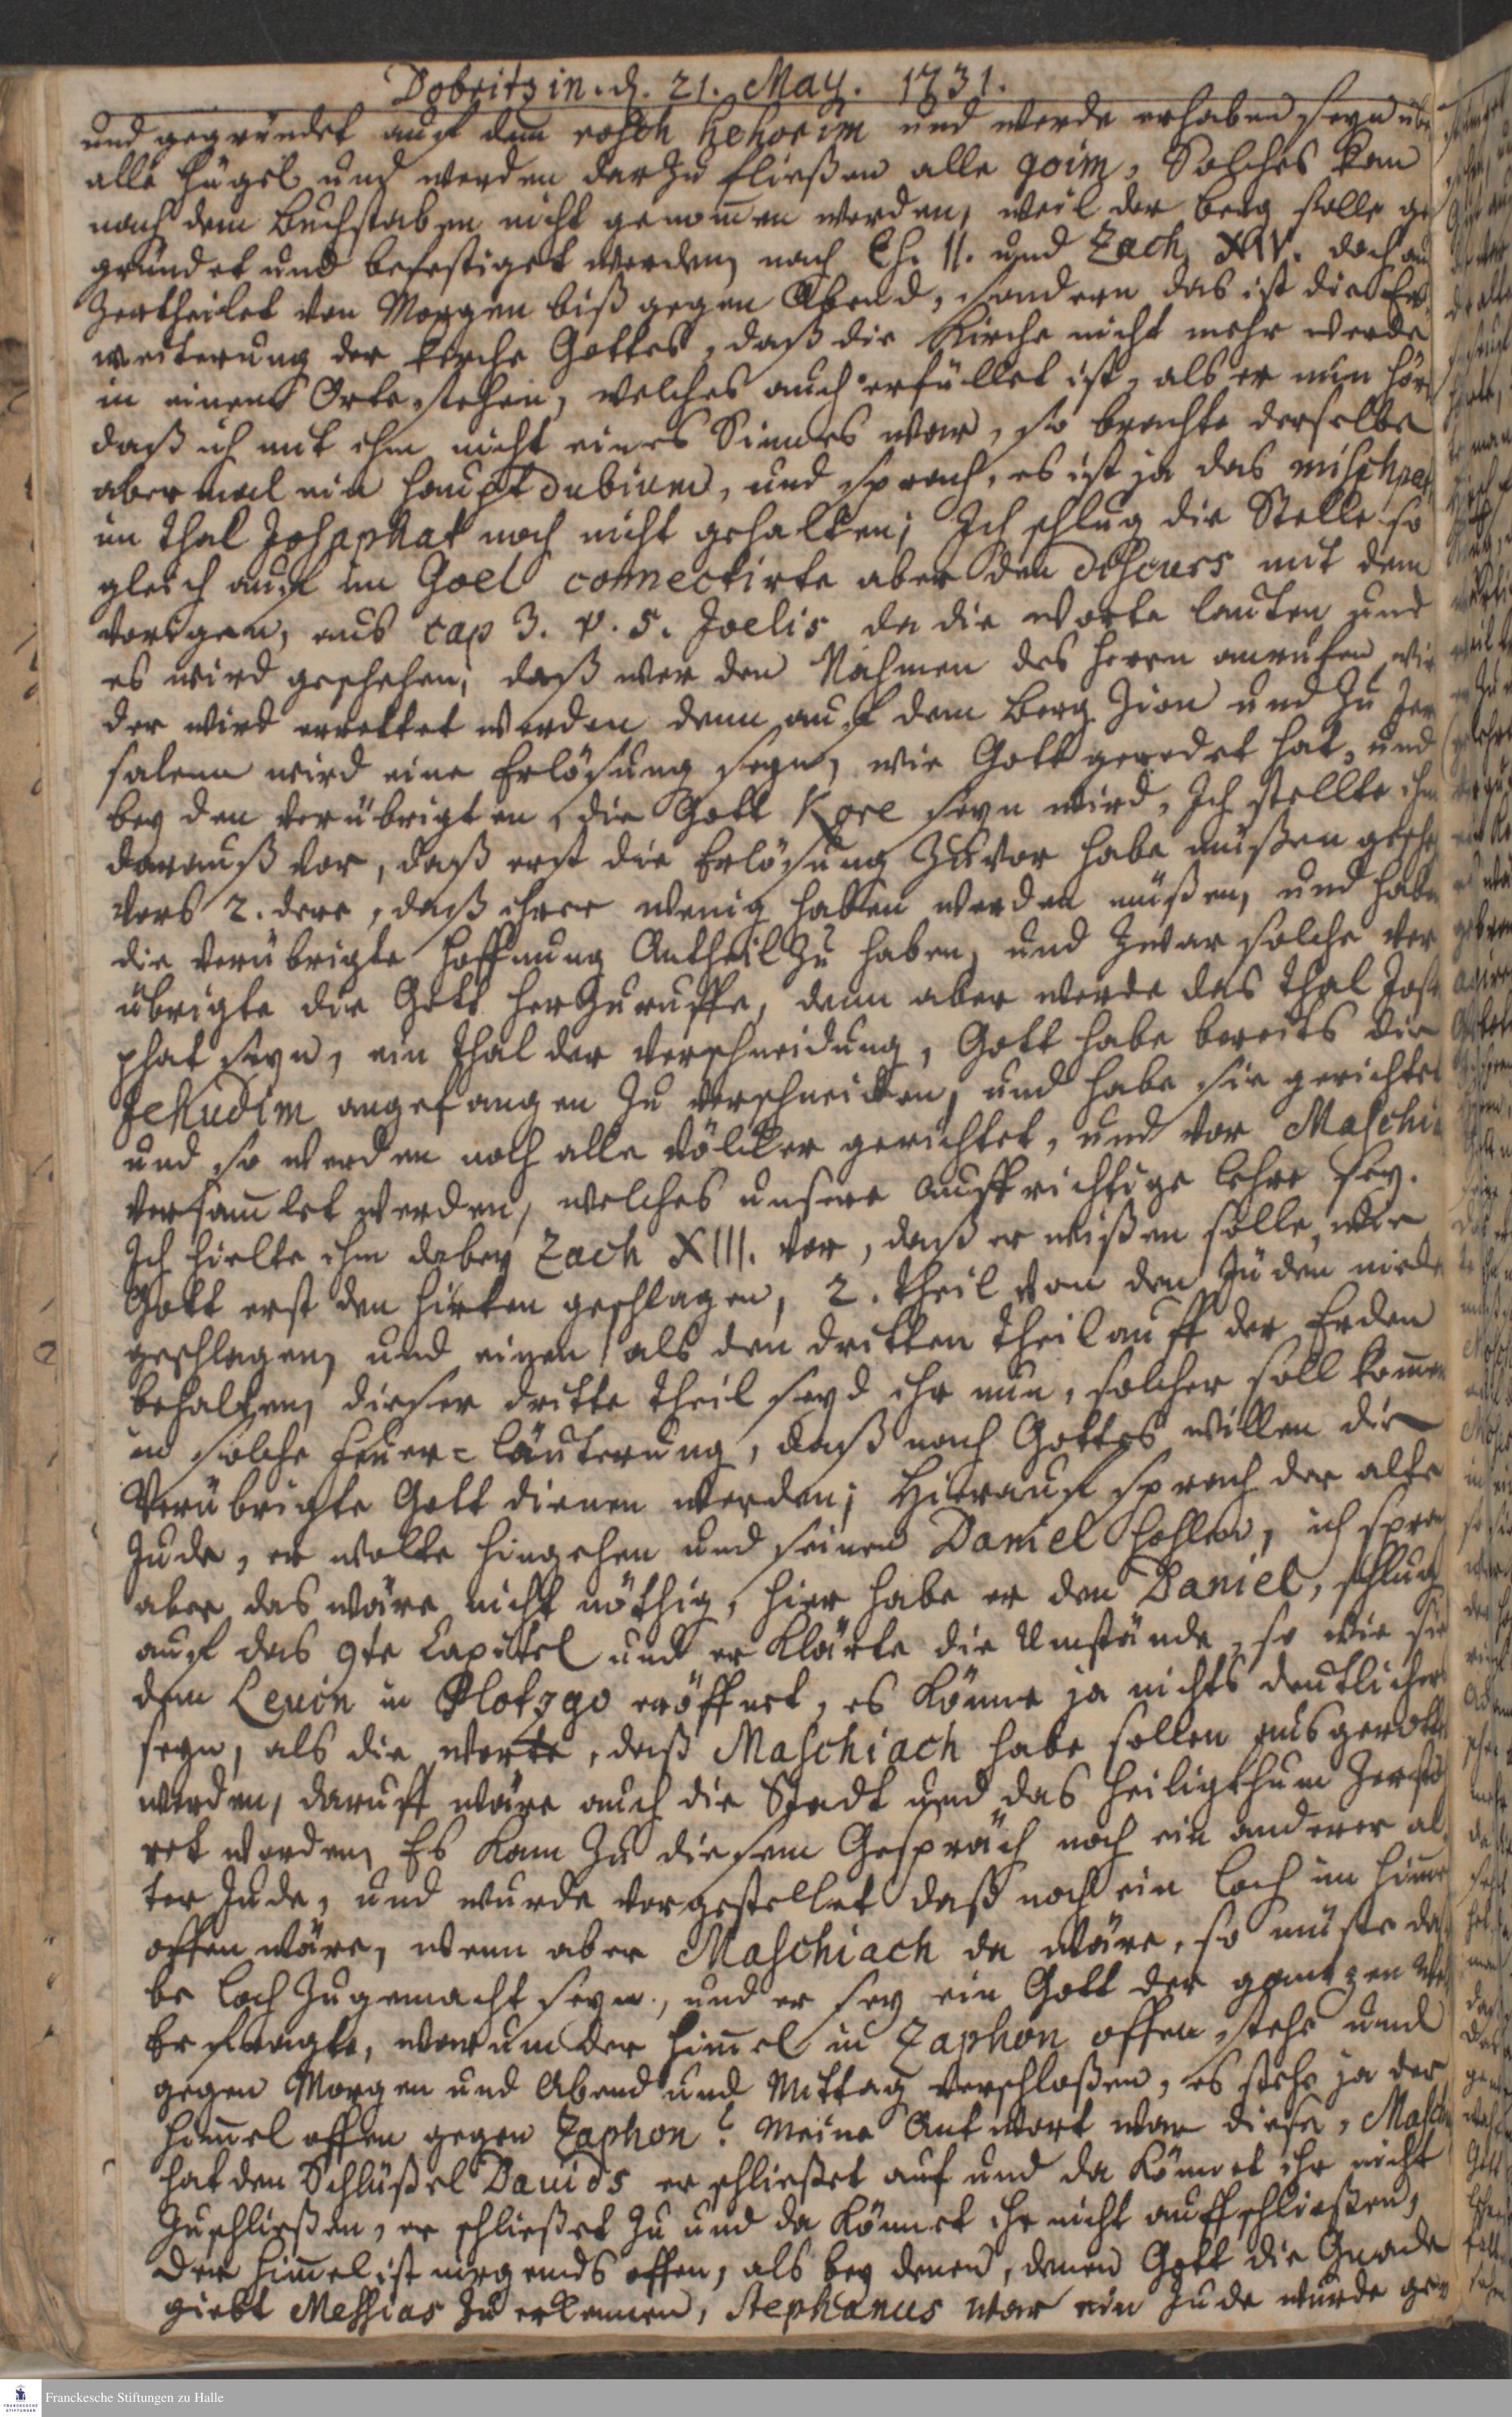 Dobritzin. d. 21. May. 1731.
und gegründet auf dem rosch hehorim und werde erhaben seyn übe
alle Hügel und werden darzu fließen alle goim, Solches kan
nach dem Buchstaben nicht genommen werden, weil der Berg solle ge
gründet und befestiget werden, nach Ch. II. und Zach. XIV. doch au
Zertheilet von Morgen biß gegen Abend, sondern das ist die Er
weiterung der Kirche Gottes, daß die Kirche nicht mehr werde
in einem Orte stehen, welches auch erfüllet ist, als er nun hör
daß ich mit ihm nicht eines Sinnes war, so brachte derselbe
abermal ein haupt dubium, und sprach, es ist ja das mischpat
im Thal Josaphat noch nicht gehalten; Ich schlug die Stelle so
gleich auf im Joel connectirte aber den discurs mit dem
vorigen, aus cap 3. v. 5. Joelis da die Worte lauten und
es wird geschehen, daß wer den Nahmen des Herrn anrufen wir
der wird errettet werden denn auf dem Berg Zion und zu Jer
salem wird eine Erlösung seyn, wie Gott geredet hat, und
bey den verübrigten, die Gott Kore seyn wird, Ich stellte ihm
darauß vor, daß erst die Erlösung zuvor habe müßen gesche
vors 2. dere, daß ihrer wenig hatten werden müßen, und habe
die verübrigte Hoffnung Antheil zu haben, und zwar solche ver
übrigte die Gott herzuruffe, denn aber werde das Thal Josa
phat seyn, ein Thal der Verschneidung, Gott habe bereits die
Jehudim angefangen zu verschneiden, und habe sie gerichtet
und so werden noch alle Völcker gerichtet, und vor Maschia
versamlet werden, welches unsere auffrichtige Lehre sey.
Ich hielte ihm dabey Zach XIII. vor, daß er wißen solle, wie
Gott erst den Hirten geschlagen, 2. Theil von den Jüden nieder
geschlagen, und einen als den dritten Theil auff der Erden
behalten, dieser dritte Theil seyd ihr nun, solcher soll kommen
in solche Feuer-Läuterung, daß nach Gottes willen die
Verübrigte Gott dienen werden; Hierauf sprach der alte
Jude, er wolte hingehen und seinen Daniel hohlen, ich sprach
aber das wäre nicht nöthig, hier habe er den Daniel, schlug
auf das 9te Capittel und erklärte die Umstände, so wie sie
dem Levin in Plotzgo eröffnet, es könne ja nichts deutlicher
seyn, als die Worte, daß Maschiach habe sollen ausgerottet
werden, darauff wäre auch die Stadt und das Heiligthum zerstö
ret worden, Es kam zu diesem Gespräch noch ein anderer al
ter Jude, und wurde vorgestellet daß noch ein Loch im Himmel
offen wäre, wenn aber Maschiach da wäre, so müste das
be Loch zugemacht seyn, und er sey ein Gott der gantzen We
Er fragte, warum der Himmel in Zaphon offen stehe und
gegen Morgen und Abend und Mittag verschloßen, es stehe ja der
Himmel offen gegen Zaphon? Meine Antwort war diese, Masch
hat den Schlüßel Davids er schließet auf und da könnet ihr nicht
zuschließen, er schließet zu und da könnet ihr nicht auffschließen,
Der Himmel ist nirgends offen, als bey denen, denen Gott die Gnade
giebt Messias zu erkennen, Stephanus war ein Jude wurde ge
Franckesche Stiftungen zu Halle